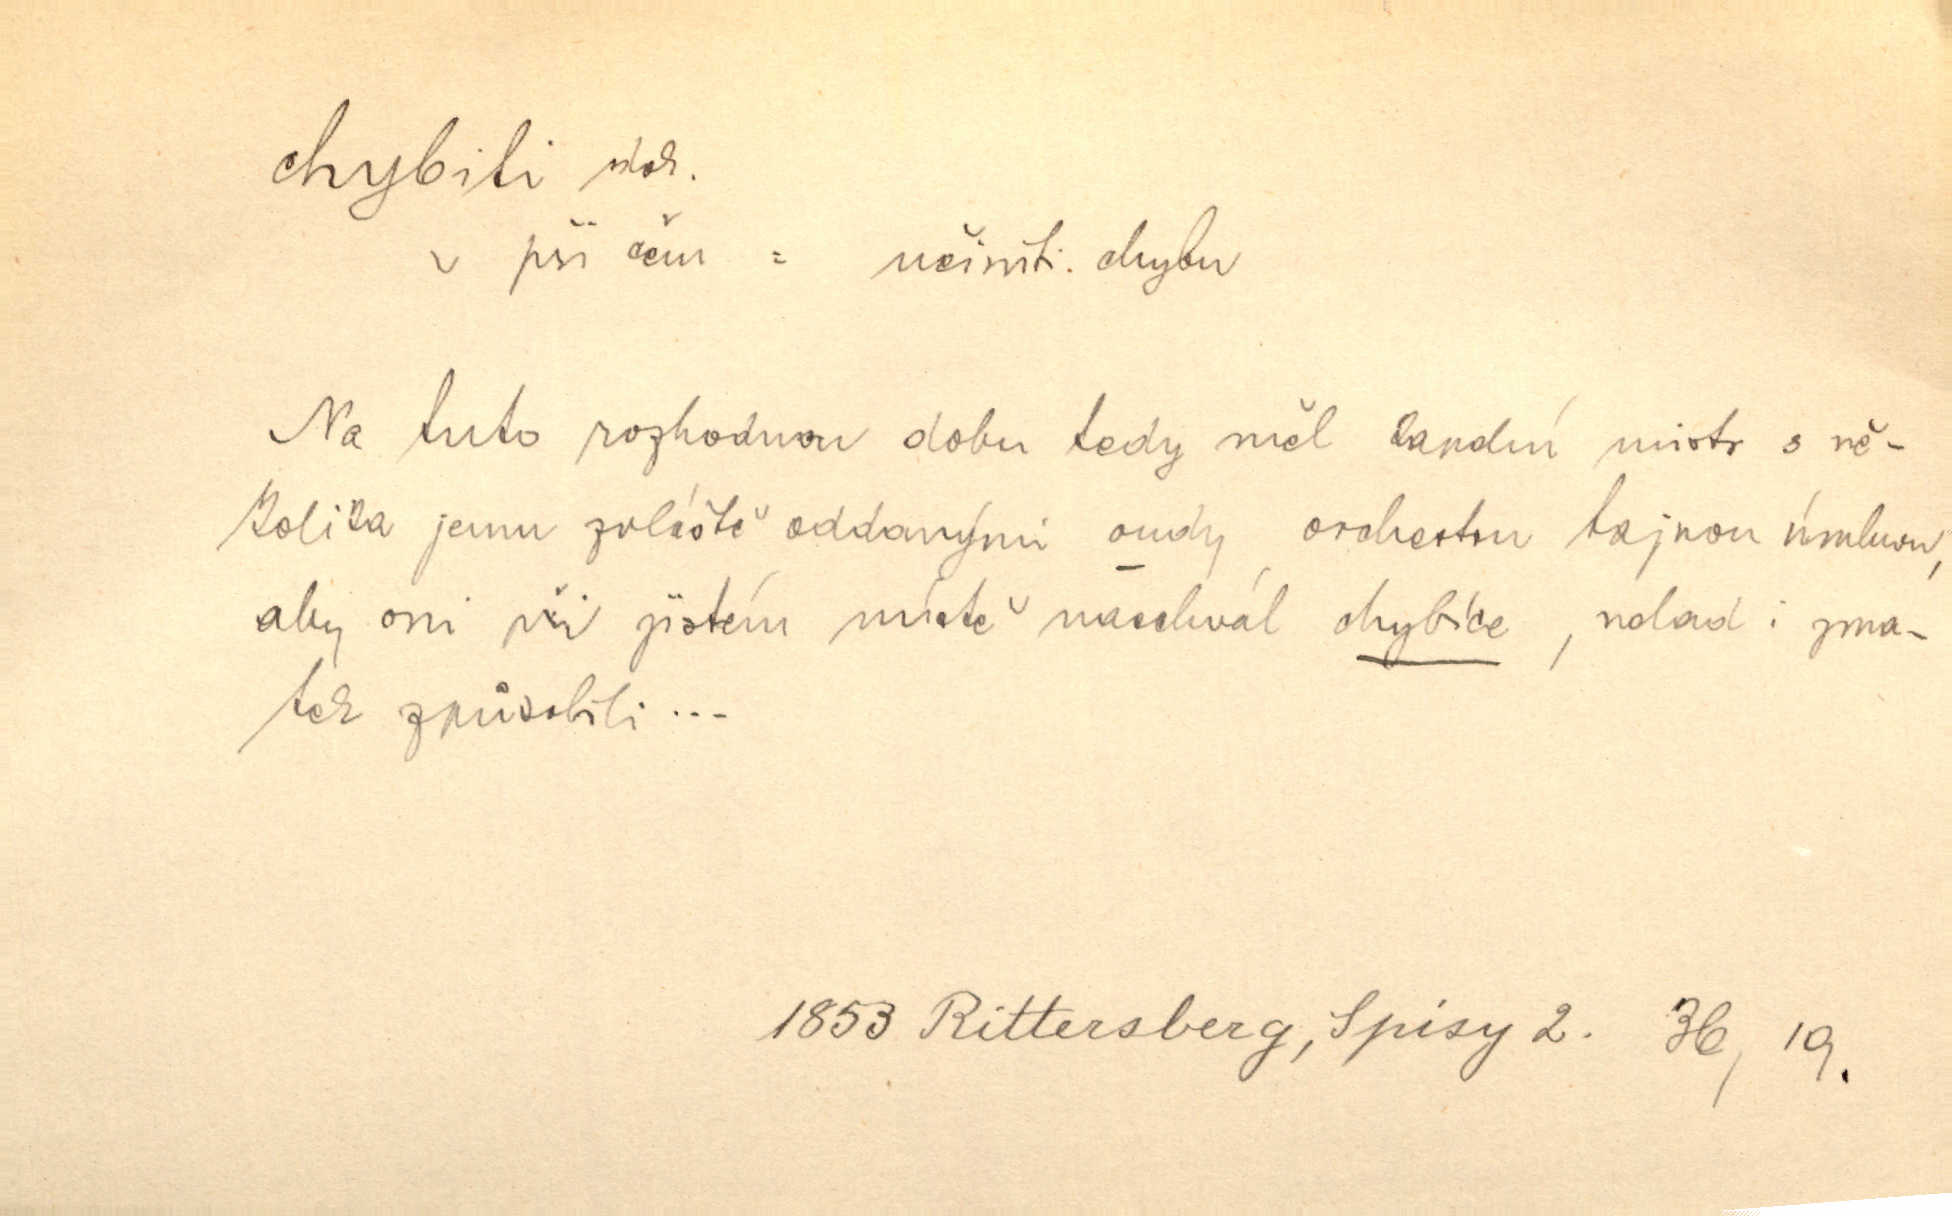 chybiti dok.
v při čem = učiniti chybu
Na tuto rozhodnou dobu tedy měl kapelní mistr s ně-
kolika jemu zvláště oddanými oudy orchestru tajnou úmluvu,
aby oni při jistém místě naschvál chybíce, nelad i zma-
tek způsobili ...
1853 Rittersberg, Spisy 2. 36, 19.